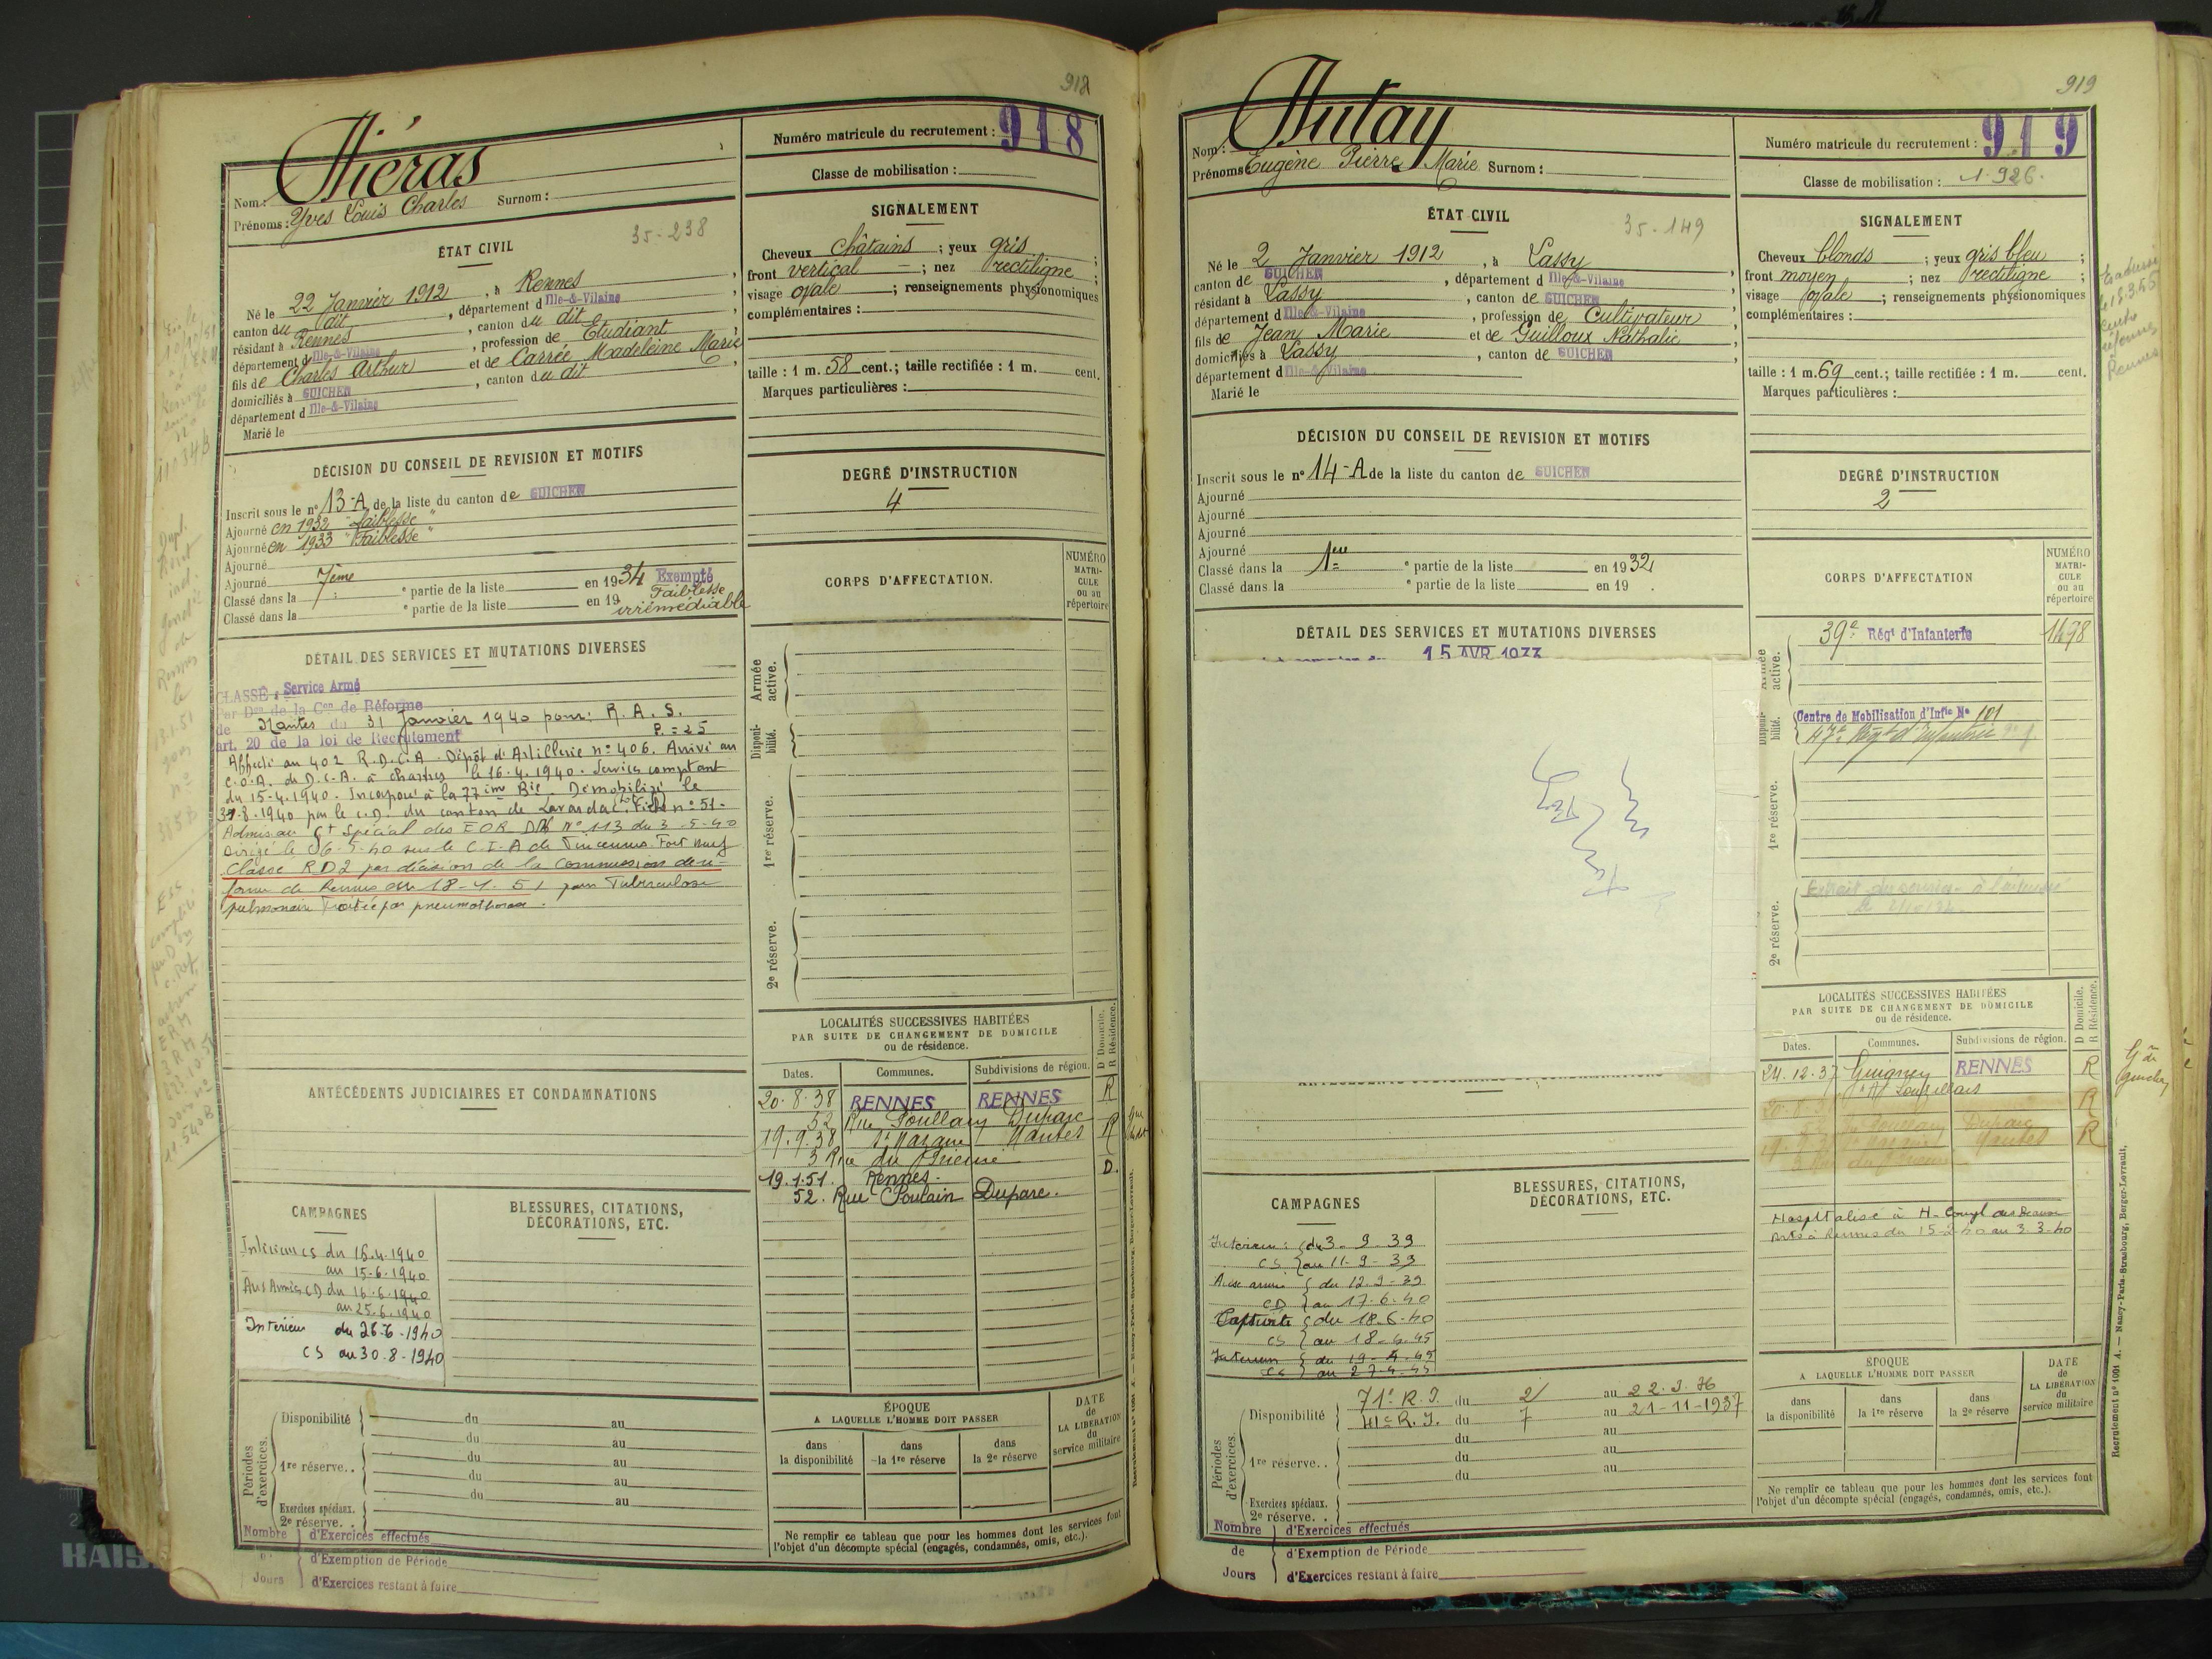 918
Nom : Hiéras
Prénoms : Yves Louis Charles Surnom :
Numéro matricule du recrutement : 918
Classe de mobilisation :
ÉTAT CIVIL
35-238
Né le 22 Janvier 1912, à Rennes,
canton du dit, département d Ille-&-Vilaine,
résidant à Rennes, canton du dit,
département d Ille-&-Vilaine, profession de Etudiant,
fils de Charles Arthur et de Carrée Madeleine Marie,
domiciliés à GUICHEN, canton du dit,
département d Ille-&-Vilaine
Marié le
SIGNALEMENT
Cheveux châtains ; yeux gris ;
front vertical ; nez rectiligne ;
visage ovale ; renseignements physionomiques
complémentaires :
taille : 1 m. 58 cent.; taille rectifiée : 1 m. cent.
Marques particulières :
DÉCISION DU CONSEIL DE REVISION ET MOTIFS
Inscrit sous le n° 13-A de la liste du canton de GUICHEN
Ajourné en 1932 "faiblesse"
Ajourné en 1933 "Faiblesse"
Ajourné
Ajourné
Classé dans la 7ème e partie de la liste en 1934 Exempté
Classé dans la e partie de la liste en 19 Faiblesse
irrémédiable
DEGRÉ D'INSTRUCTION
4
DÉTAIL DES SERVICES ET MUTATIONS DIVERSES
CLASSÉ : Service Armé
Par Don de la Con de Réforme
de Nantes du 31 Janvier 1940 pour: R. A. S.
art. 20 de la loi de Recrutement P. = 25
Affecté au 402 R.D.C.A. Dépôt d'Artillerie n° 406. Arrivé au
C.O.A. de D.C.A. à Chartres le 16.4.1940. Services comptant
du 15-4.1940. Incorporé à la 77ème Bie. Démobilisé le
8.1940 par le C.D. du canton de Lavardac. Fiche n° 51-
Admis au Ct Spécial des EOR DM N° 113 du 3-5-40
Dirigé le 06-5-40 sur le C.I.A de Vincennes Fort Neuf
Classé RD2 par décision de la Commission de ré-
forme de Rennes du 18-1.51 pour Tuberculose
pulmonaire Traitée par pneumothorax.
CORPS D'AFFECTATION.
NUMÉRO MATRI-CULE ou au répertoire
Armée active.
Disponi-bilité.
1re réserve.
2e réserve.
ANTÉCÉDENTS JUDICIAIRES ET CONDAMNATIONS
LOCALITÉS SUCCESSIVES HABITÉES
PAR SUITE DE CHANGEMENT DE DOMICILE
ou de résidence.
D Domicile. R Résidence.
Dates. Communes. Subdivisions de région.
20.8.38 RENNES RENNES R
52 Rue Poullain Duparc
19.9.38 St Nazaire Nantes R
3 Rue du Prieuré
19.1.51. Rennes. D.
52. Rue Poulain Duparc.
CAMPAGNES
BLESSURES, CITATIONS,
DÉCORATIONS, ETC.
Intérieur CS du 16.4.1940
au 15-6.1940
Aux Armées CD du 16.6.1940
au 25.6.1940
Intérieur du 26-6-1940
CS au 30-8-1940
Périodes d'exercices.
Disponibilité du au
du au
1re réserve.. du au
du au
du au
Exercices spéciaux.
2e réserve. .
Nombre d'Exercices effectués
d'Exemption de Période
Jours d'Exercices restant à faire
ÉPOQUE
A LAQUELLE L'HOMME DOIT PASSER
dans la disponibilité
dans la 1re réserve
dans la 2e réserve
DATE de LA LIBÉRATION du service militaire
Ne remplir ce tableau que pour les hommes dont les services font
l'objet d'un décompte spécial (engagés, condamnés, omis, etc.).
919
Nom : Hutay
Prénoms : Eugène Pierre Marie Surnom :
Numéro matricule du recrutement : 919
Classe de mobilisation : 1926.
ÉTAT CIVIL
35-149
Né le 2 Janvier 1912, à Lassy,
canton de GUICHEN, département d Ille-&-Vilaine,
résidant à Lassy, canton de GUICHEN,
département d Ille-&-Vilaine, profession de Cultivateur,
fils de Jean Marie et de Guilloux Nathalie,
domiciliés à Lassy, canton de GUICHEN,
département d Ille-&-Vilaine
Marié le
SIGNALEMENT
Cheveux blonds ; yeux gris bleu ;
front moyen ; nez rectiligne ;
visage ovale ; renseignements physionomiques
complémentaires :
taille : 1 m. 69 cent.; taille rectifiée : 1 m. cent.
Marques particulières :
DÉCISION DU CONSEIL DE REVISION ET MOTIFS
Inscrit sous le n° 14-A de la liste du canton de GUICHEN
Ajourné
Ajourné
Ajourné
Ajourné
Classé dans la 1ère e partie de la liste en 1932
Classé dans la e partie de la liste en 19 .
DEGRÉ D'INSTRUCTION
2
DÉTAIL DES SERVICES ET MUTATIONS DIVERSES
15 AVR 1933
CORPS D'AFFECTATION
NUMÉRO MATRI-CULE ou au répertoire
Armée active.
39e Régt d'Infanterie 1478
Disponi-bilité.
Centre de Mobilisation d'Infie No 101
47e Régt d'Infanterie
1re réserve.
2e réserve.
LOCALITÉS SUCCESSIVES HABITÉES
PAR SUITE DE CHANGEMENT DE DOMICILE
ou de résidence.
D Domicile. R Résidence.
Dates. Communes. Subdivisions de région.
24.12.37 Guignen RENNES R
Duparc R
Nantes R
Hospitalisé à H. Compl des Beaux
Arts à Rennes du 15-2-40 au 3-3-40
CAMPAGNES
BLESSURES, CITATIONS,
DÉCORATIONS, ETC.
Intérieur : du 3-9-39
CS au 11-9-39
Aux armées du 12.9-39
CD au 17-6-40
Captivité du 18-6-40
CS au 18-4-45
Intérieur du 19-4-45
CS au 27-4-45
Périodes d'exercices.
Disponibilité 71e R.I. du 2/ au 22.3.36
41e R.I. du 7 au 21-11-1937
du au
1re réserve. . du au
du au
Exercices spéciaux.
2e réserve. .
Nombre d'Exercices effectués
de d'Exemption de Période
Jours d'Exercices restant à faire
ÉPOQUE
A LAQUELLE L'HOMME DOIT PASSER
dans la disponibilité
dans la 1re réserve
dans la 2e réserve
DATE de LA LIBÉRATION du service militaire
Ne remplir ce tableau que pour les hommes dont les services font
l'objet d'un décompte spécial (engagés, condamnés, omis, etc.).
Recrutement n° 1001 A. — Nancy-Paris-Strasbourg, Berger-Levrault.